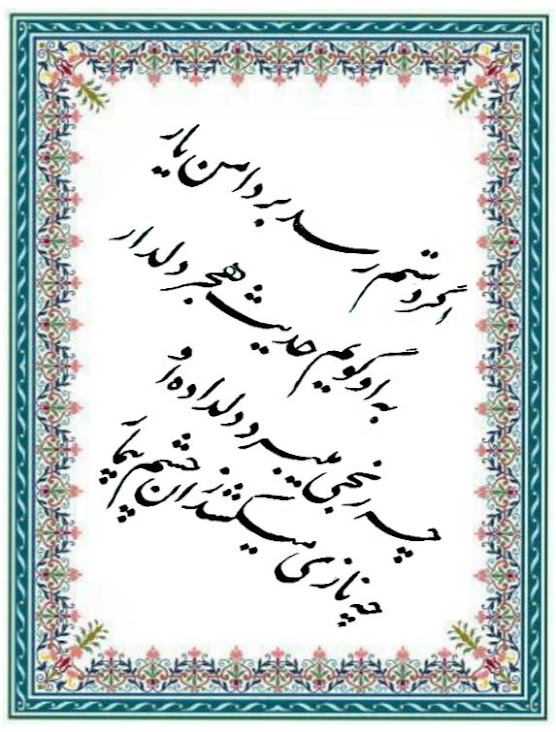 اگر دستم رسد بر دامن یار
به او گویم حدیث هجر دلدار
چه رنجی میبرد دلداده او
چه نازی میکشد زان چشم بیمار